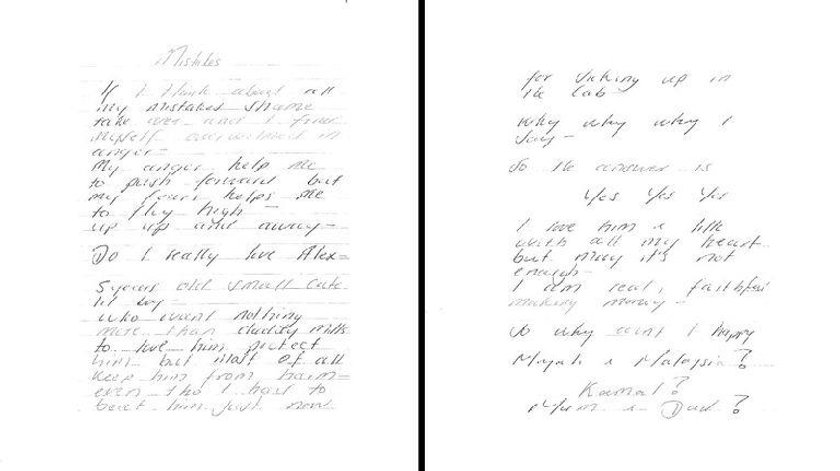 Mistakes
If I think about all
my mistakes shame
take over and I find
myself overwhelmed in
anger =
My anger help me
to push forward but
my fears helps me
to fly high -
up up and away -
Do I really love Alex =
5 years old small cute
lil boy
who want nothing
more than daddy Nills
to love him protect
him but most of all
keep him from harm =
even tho I had to
beat him just now
for up in
the Cab
Why why why I
say -
So the answer is
Yes Yes Yes
I love him a little
with all my heart
but may it's not
enough -
I am real, faithful
making money -
So why aint I happy
Myah & Malaysia ?
Kamal ?
Mum & Dad ?